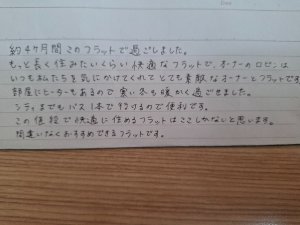 約4ケ月間このフラットで過ごしました。
もっと長く住みたいくらい快適なフラットで、オーナーのロビンは
いつも私たちを気にかけてくれてとても素敵なオーナーとフラットです。
部屋にヒーターもあるので寒い冬も暖かく過ごせました。
シティまでもバス1本で行けるので便利です。
この値段で快適に住めるフラットはここしかないと思います。
間違いなくおすすめできるフラットです。